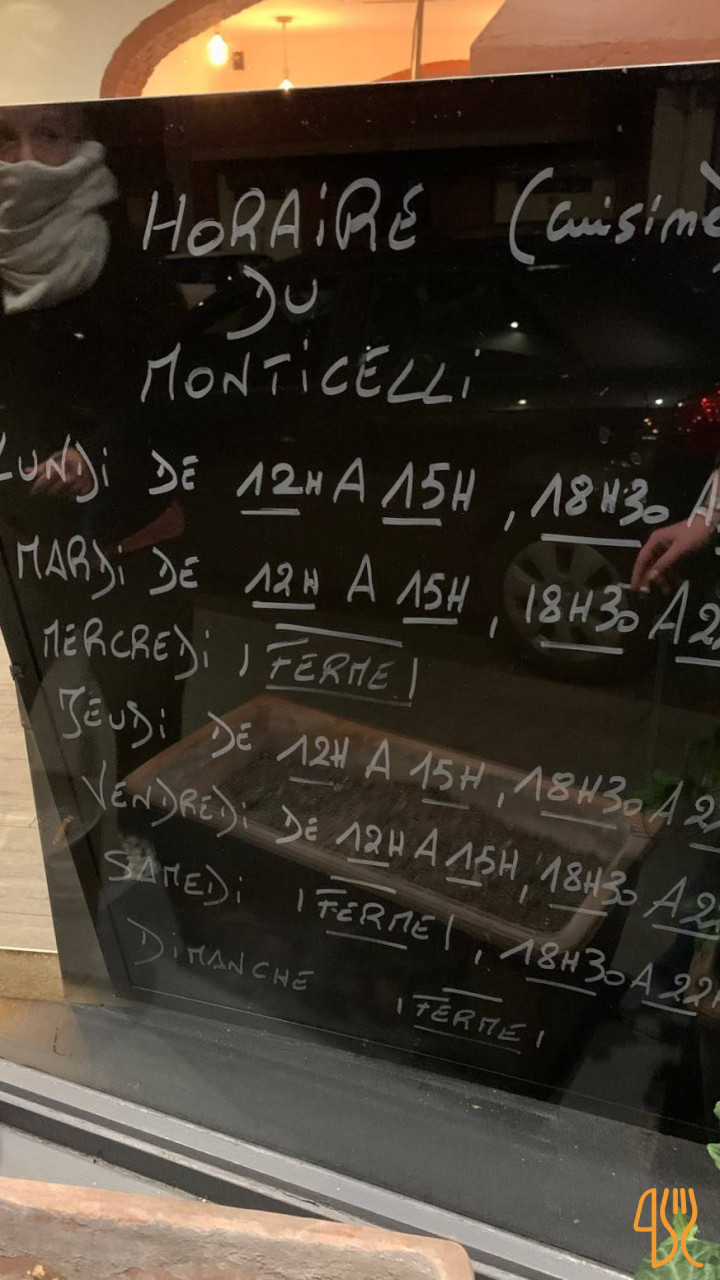 HORAIRE (cuisine)
DU
MONTICELLI
LUNDI DE 12H A 15H, 18H30 A
MARDI DE 12H A 15H, 18H30 A 2
MERCREDI, FERME
JEUDI DE 12H A 15H, 18H30 A 2
VENDREDI DE 12H A 15H, 18H30 A 2
SAMEDI FERME, 18H30 A 22H
DIMANCHE FERME